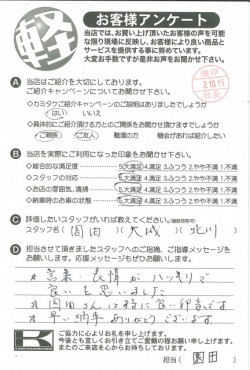 軽
お客様アンケート
当店では、お買い上げ頂いたお客様の声を可能な
限り現場に反映し、お客様により良い商品と
サービスを提供する事に努めています。
大変お手数ですが是非お声をお聞かせ下さい。
2.10.15
A 当店はご紹介を大切にしております。
ご紹介キャンペーンについてお聞かせ下さい
◇カミタケご紹介キャンペーンのご説明はありましたでしょうか
はい いいえ
◇具体的にご紹介頂ける方とのご関係をお聞かせ頂けますでしょうか
ご親族 ご友人 職場の方 機会があれば紹介したい
B 当店を実際にご利用になった印象をお聞かせ下さい。
◇総合的な満足度 5.大満足 4.満足 3.ふつう 2.やや不満 1.不満
◇スタッフの対応 5.大満足 4.満足 3.ふつう 2.やや不満 1.不満
◇お店の雰囲気、清掃 5.大満足 4.満足 3.ふつう 2.やや不満 1.不満
◇納車時のお車の状態 5.大満足 4.満足 3.ふつう 2.やや不満 1.不満
C 評価したいスタッフがいれば教えてください。(複数回答可)
スタッフ名( 園田 )( 大城 )( 北川 )
D 担当させて頂きましたスタッフへのご指摘、ご指導メッセージを
お願いします。応援メッセージもぜひお願いします。
言葉・表情がハッキリで
良いと思いました
園田さんは特に良い印象です
早い納車ありがとうございます
K
ご協力に心よりお礼を申し上げます。
今後とも宜しくお引き立てご愛顧の程お願い申し上げます。
またのご来店を心からお待ちしております。
担当( 園田 )